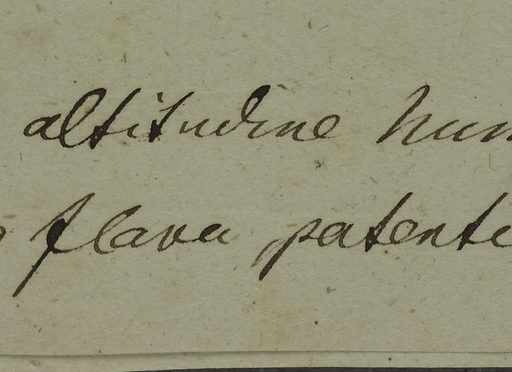 altitudine hum
flava, patenti